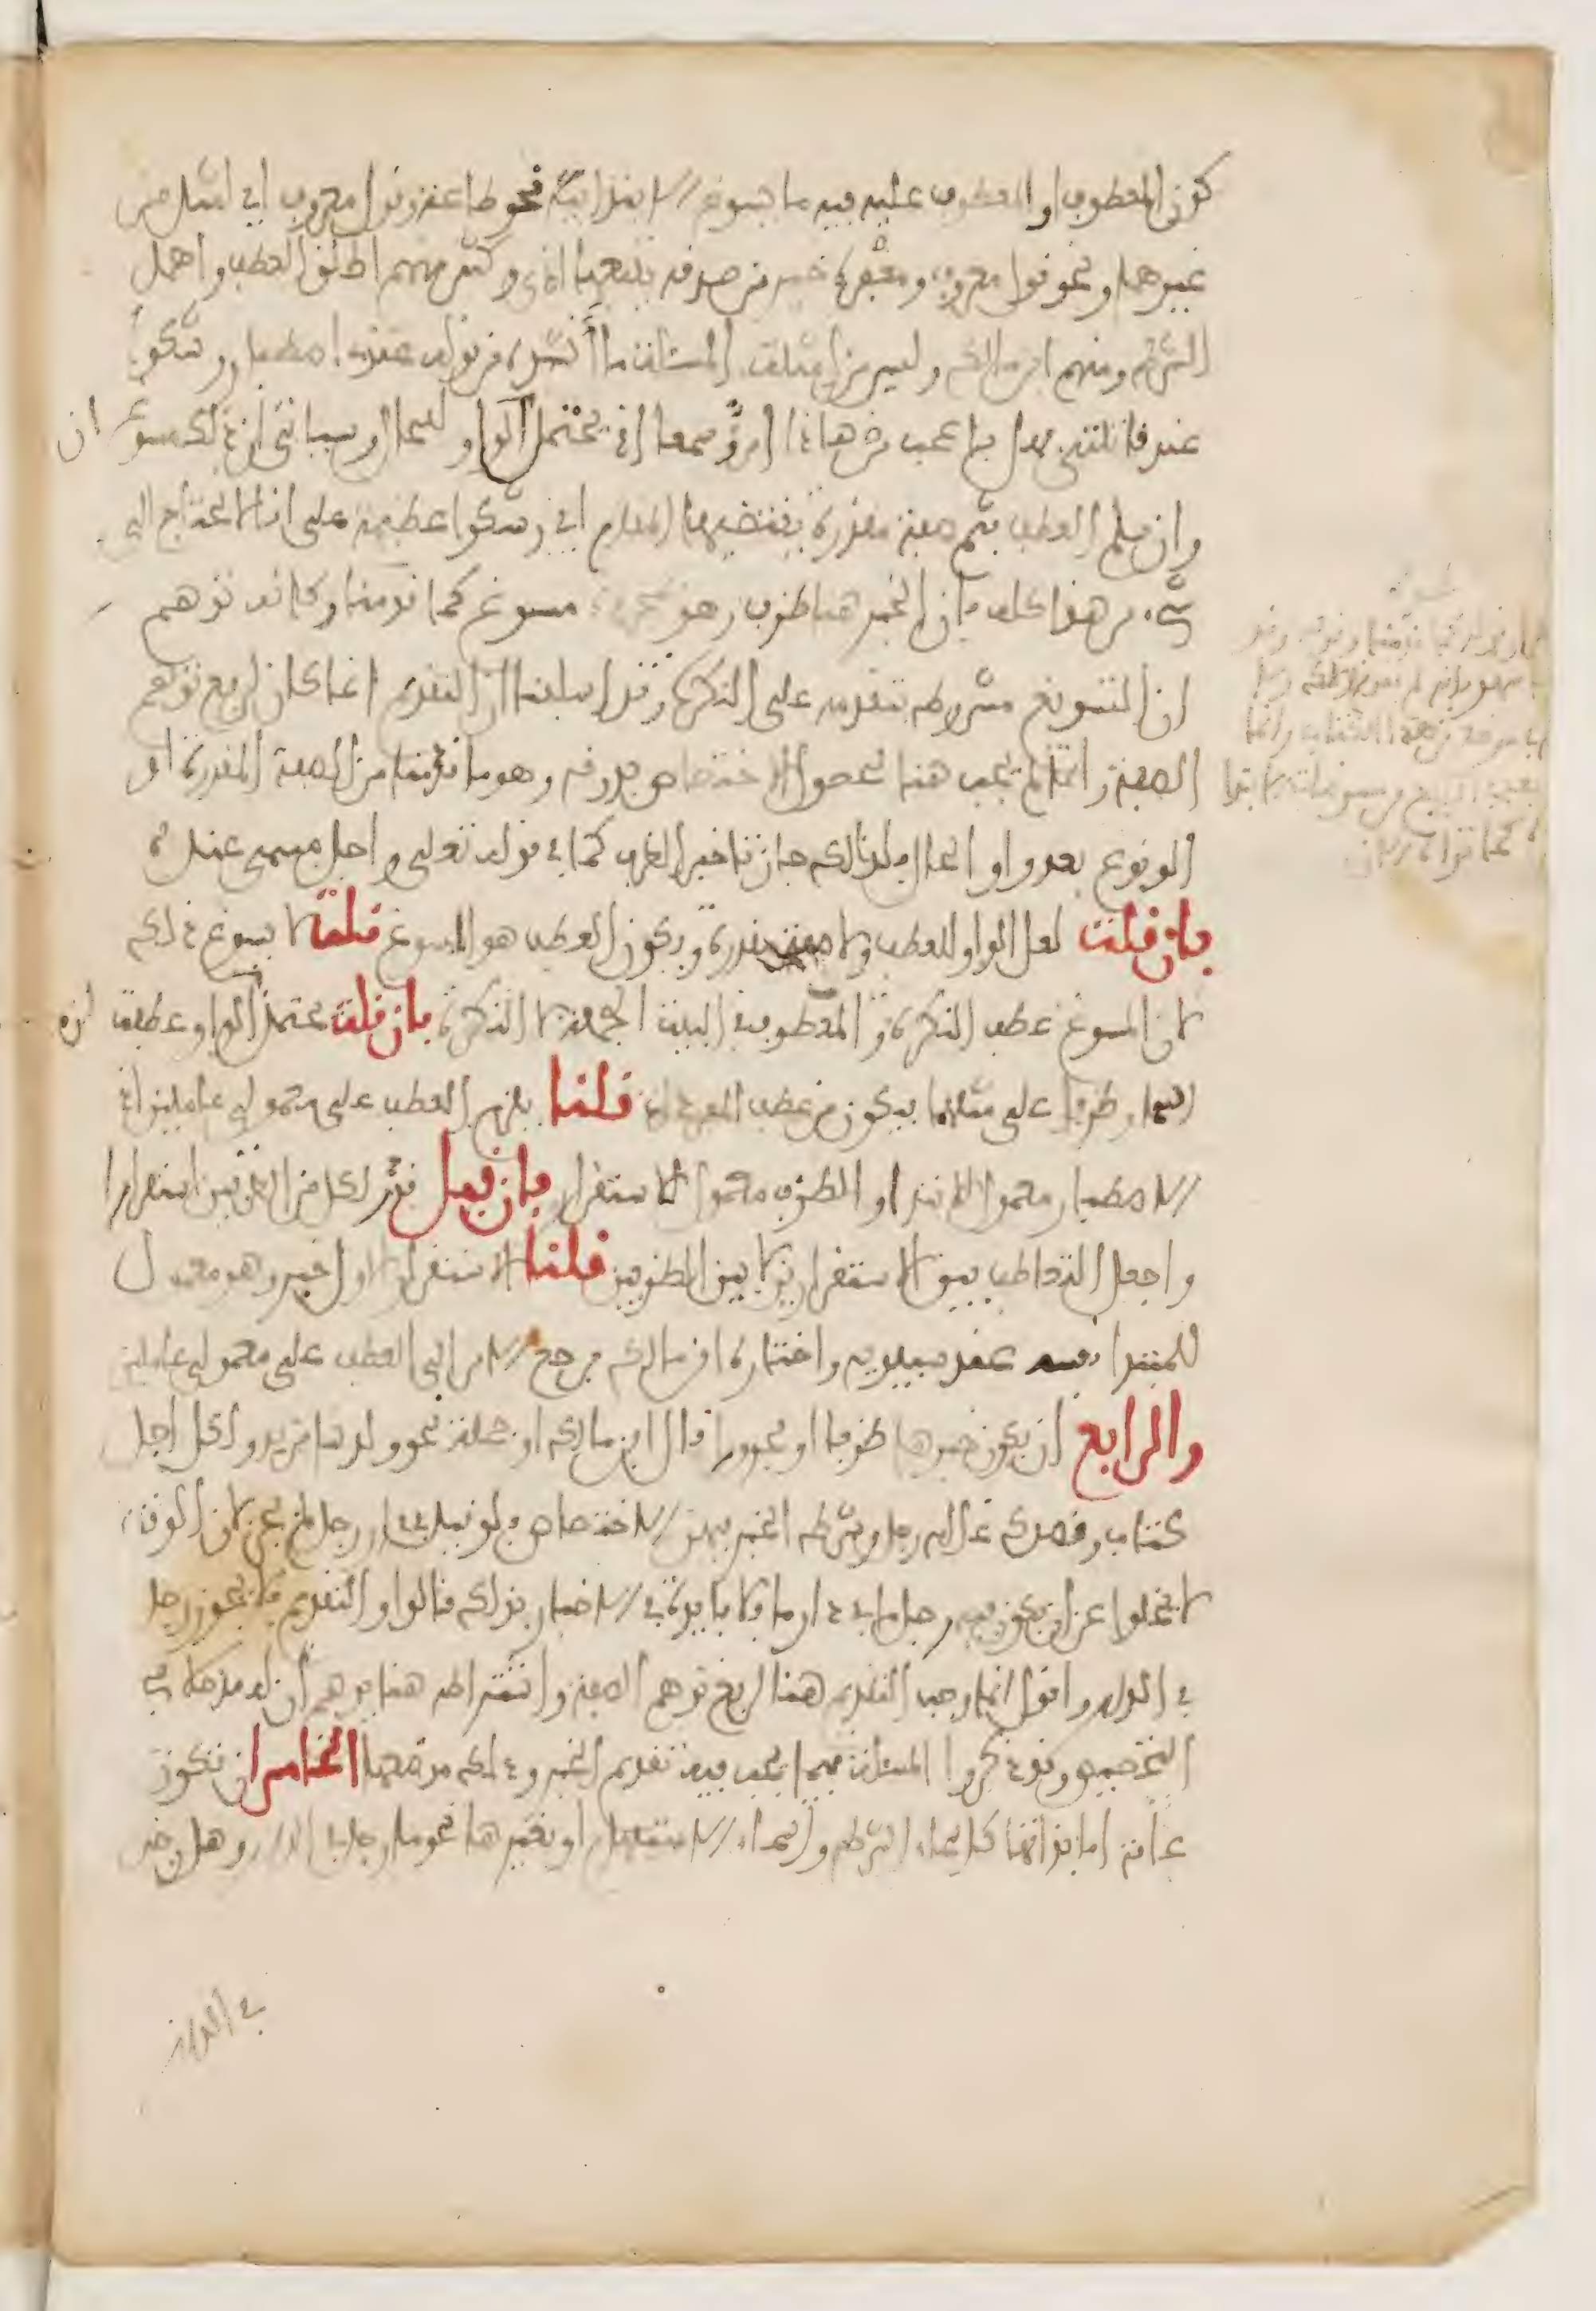 كون المعطوف او المعطوف عليه فيه ما يسوغ الابتداء به نحو طاعة وقول معروف اي امثل من
غيرهما ونحو قول معروف ومغفرة خير من صدقة يتبعها اذى وكثير منهم اطلق العطف واهمل
الشرط ومنهم ابن مالك وليس من امثلة المسئلة ما انشده من قوله عندى اصطبار وشكوى
عند قاتلتي فهل باعجب من هاذا امرؤ سمعا اذ يحتمل الواو للحال وسياتي ان ذلك مسوغ
وان سلم العطف فثم صفة مقدرة يقتضيها المقام اي وشكوى عظيمة على انا لا نحتاج الى
شيء من هذا كله فان الخبر هنا ظرف وهو مسوغ كما قدمنا وكانه توهم
ان التسويغ مشروط بتقدمه على النكرة وقد اسلفنا ان التقديم انما كان لدفع توهم
الصفة وانما لم يجب هنا لحصول الاختصاص بدونه وهو ما قدمنا من الصفة المقدرة او
الوقوع بعد واو الحال فلذالك جاز تاخير الظرف كما في قوله تعلى واجل مسمى عنده
فان قلت لعل الواو للعطف ولا صفة مقدرة ويكون العطف هو المسوغ قلت لا يسوغ ذلك
لان المسوغ عطف النكرة والمعطوف في البيت الجملة لا النكرة فان قلت يحتمل ان الواو عطفت
اسما وظرفا على مثلهما فيكون من عطف المفردات قلنا يلزم العطف على معمولي عاملين اذ
الاصطبار معمول للابتداء والظرف معمول للاستقرار فان قيل قدر لكل من الظرفين استقرارا
واجعل التعاطف بين الاستقرارين لا بين الظرفين قلنا الاستقرار الاول خبر وهو معمول
للمبتدا نفسه عند سيبويه واختاره ابن مالك فرجع الامر الى العطف على معمولي عاملين
والرابع ان يكون خبرها ظرفا او مجرورا قال ابن مالك او جملة نحو ولدينا مزيد ولكل اجل
كتاب وقصدك غلامه رجل وشرط الخبر فيهن الاختصاص فلو قيل في دار رجل لم يجز لان الوقت
لا يخلوا عن ان يكون فيه رجل ما في دار ما فلا فايدة في الاخبار بذلك قالوا والتقديم فلا يجوز رجل
في الدار واقول انما وجب التقديم هنا لدفع توهم الصفة واشتراطه هنا يوهم ان له مدخلا في
التخصيص وقد ذكروا المسئلة فيما يجب فيه تقديم الخبر وذلك موضعها الخامس ان تكون
عامة اما بذاتها كاسماء الشرط واسماء الاستفهام او بغيرها نحو ما رجل في الدار وهل رجل
في الدار